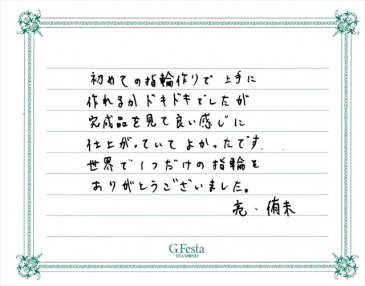 初めての指輪作りで 上手に
作れるか ドキドキでしたが
完成品を見て良い感じに
仕上がっていて よかったです
世界で1つだけの指輪を
ありがとうございました。
亮・侑未
G.Festa
DIAMOND